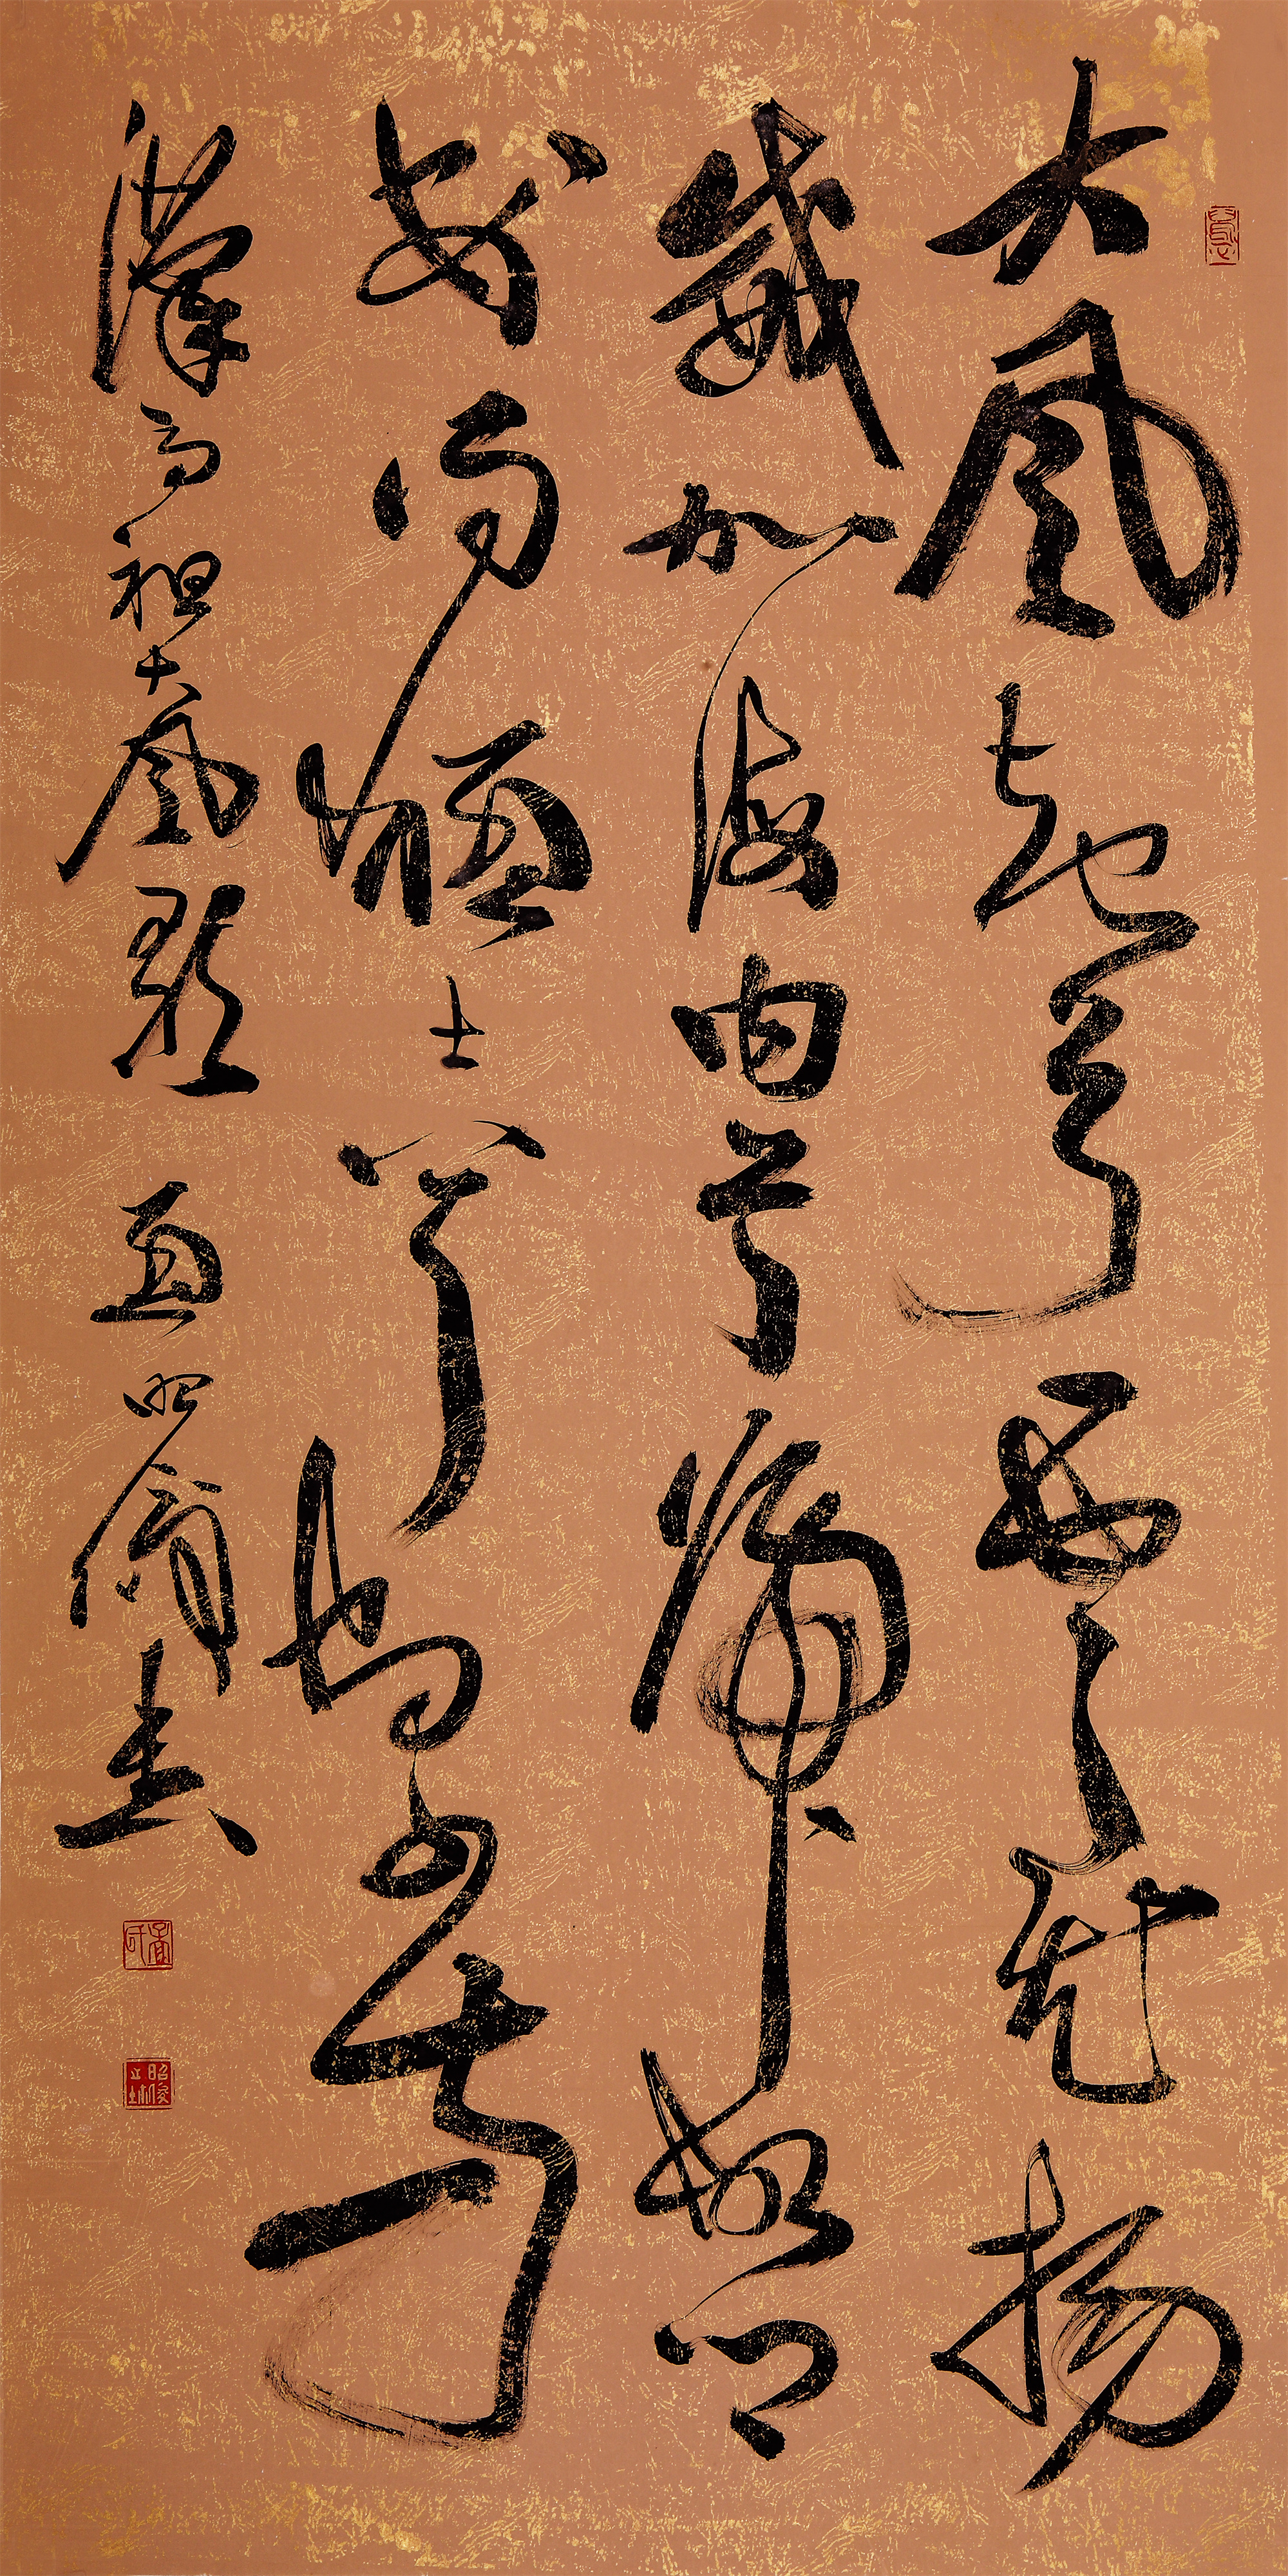 大風起兮雲飛揚
威加海內兮歸故鄉
安得猛士兮守四方
漢高祖大風歌 孟昭儁書